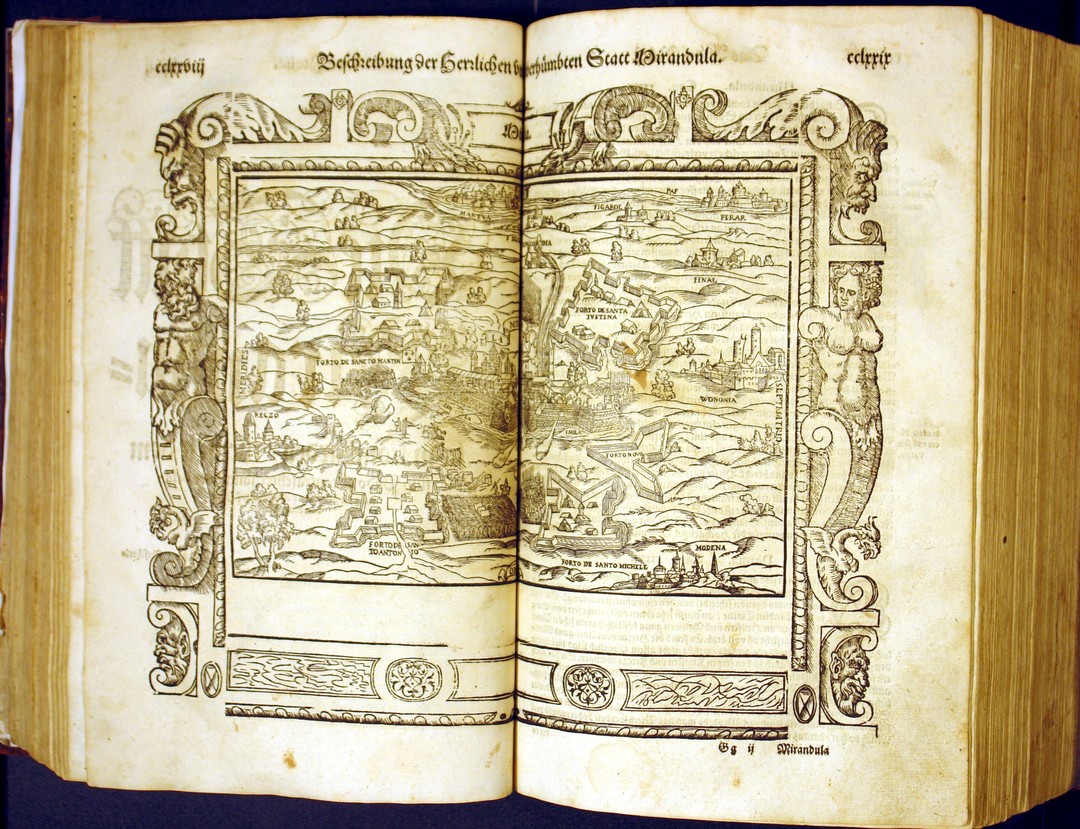 cclxxviij
Beschreibung der Herrlichen
erhümbten Statt Mirandula.
cclxxix
MANTVA
PAF
FIGAROL
FERAR
FINAL
FORTO DE SANTA
IVSTINA
FORTO DE SANCTO MARTIN
MERIDIES
REGZO
WONONIA
SEPTEMTRIO
ISOLI
FORTO NOVO
FORTO DE SAN
TO ANTON IO
MODENA
FORTO DE SANTO MICHELE
Gg ij Mirandula